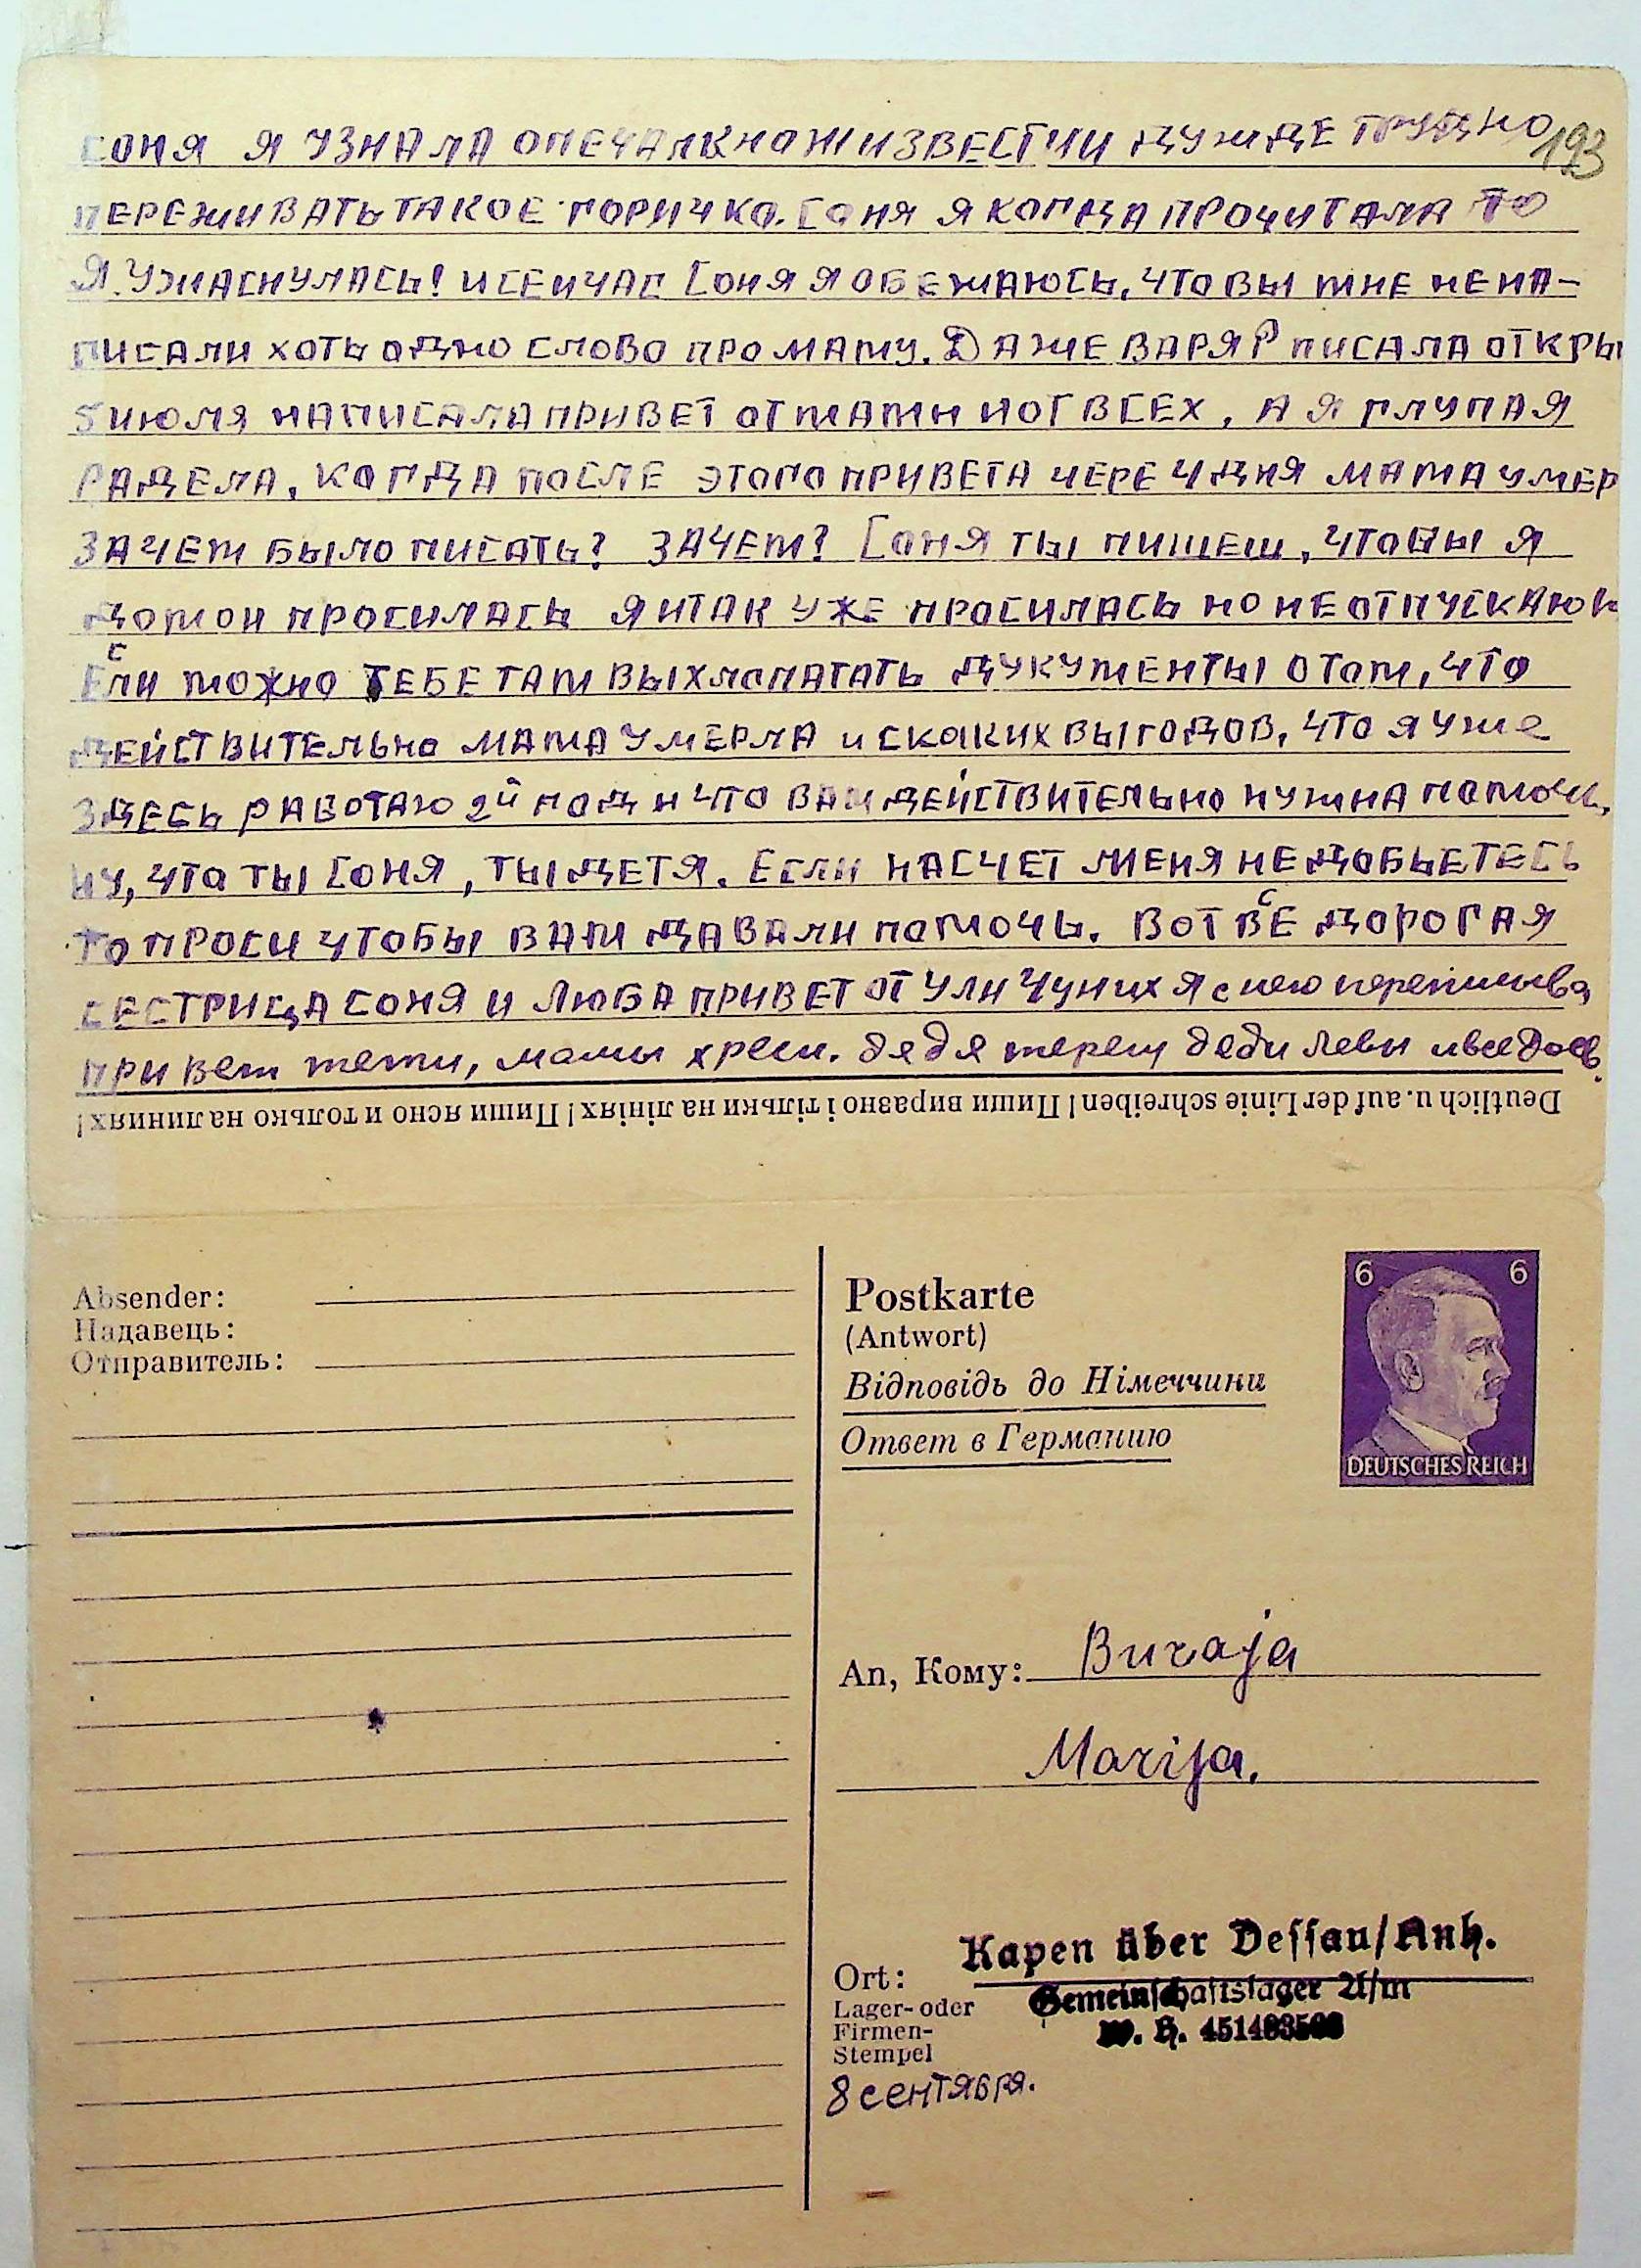 193
СОНЯ Я УЗНАЛА ОПЕЧАЛКНОЖ ИЗВЕСТИИ ДУЖДЕ ТРУДНО
ПЕРЕЖИВАТЬ ТАКОЕ ГОРИЧКО. СОНЯ Я КОГДА ПРОЧИТАЛА ТО
Я УЖАСНУЛАСЬ! И СЕИЧАС СОНЯ Я ОБЕЖАЮСЬ, ЧТО ВЫ МНЕ НЕ НА-
ПИСАЛИ ХОТЬ ОДНО СЛОВО ПРО МАМУ. ДАЖЕ ВАРЯ Р ПИСАЛА ОТКРЫ
5 ИЮЛЯ НАПИСАЛА ПРИВЕТ ОТ МАМИ И ОТ ВСЕХ, А Я ГЛУПАЯ
РАДЕЛА, КОГДА ПОСЛЕ ЭТОГО ПРИВЕТА ЧЕРЕ 4 ДНЯ МАМА УМЕР
ЗАЧЕМ БЫЛО ПИСАТЬ? ЗАЧЕМ? СОНЯ ТЫ ПИШЕШ, ЧТОБЫ Я
ДОМОИ ПРОСИЛАСЬ Я ИТАК УЖЕ ПРОСИЛАСЬ НО НЕ ОТПУСКАЮ
ЕСЛИ МОЖНО ТЕБЕ ТАМ ВЫХЛОПАТАТЬ ДУКУМЕНТЫ О ТОМ, ЧТО
ДЕЙСТВИТЕЛЬНО МАМА УМЕРЛА И СКОКИХ ВЫ ГОДОВ, ЧТО Я УЖЕ
ЗДЕСЬ РАБОТАЮ 2й ГОД И ЧТО ВАМ ДЕЙСТВИТЕЛЬНО НУЖНА ПАМОЧЬ,
НУ, ЧТО ТЫ СОНЯ, ТЫ ДЕТЯ. ЕСЛИ НАСЧЕТ МЕНЯ НЕ ДОБЬЕТЕСЬ
ТО ПРОСИ ЧТОБЫ ВАМ ДАВАЛИ ПАМОЧЬ. ВОТ ВСЕ ДОРОГАЯ
СЕСТРИЦА СОНЯ И ЛЮБА ПРИВЕТ ОТ УЛИ ЧУНИХ Я с нею переписыва
привет тети, мамы хрем. дядя терещ деди Леви и все
Deutlich u. auf der Linie schreiben! Пиши виразно і тільки на лініях! Пиши ясно и только на линиях!
Absender:
Надавець:
Отправитель:
Postkarte
(Antwort)
Відповідь до Німеччини
Ответ в Германию
6 6
DEUTSCHES REICH
An, Кому: Buraja
Marija.
Ort: Kapen über Dessau/Anh.
Lager- oder
Firmen-
Stempel
Gemeinschaftslager M/m
W. H.
8 СЕНТЯБРЯ.